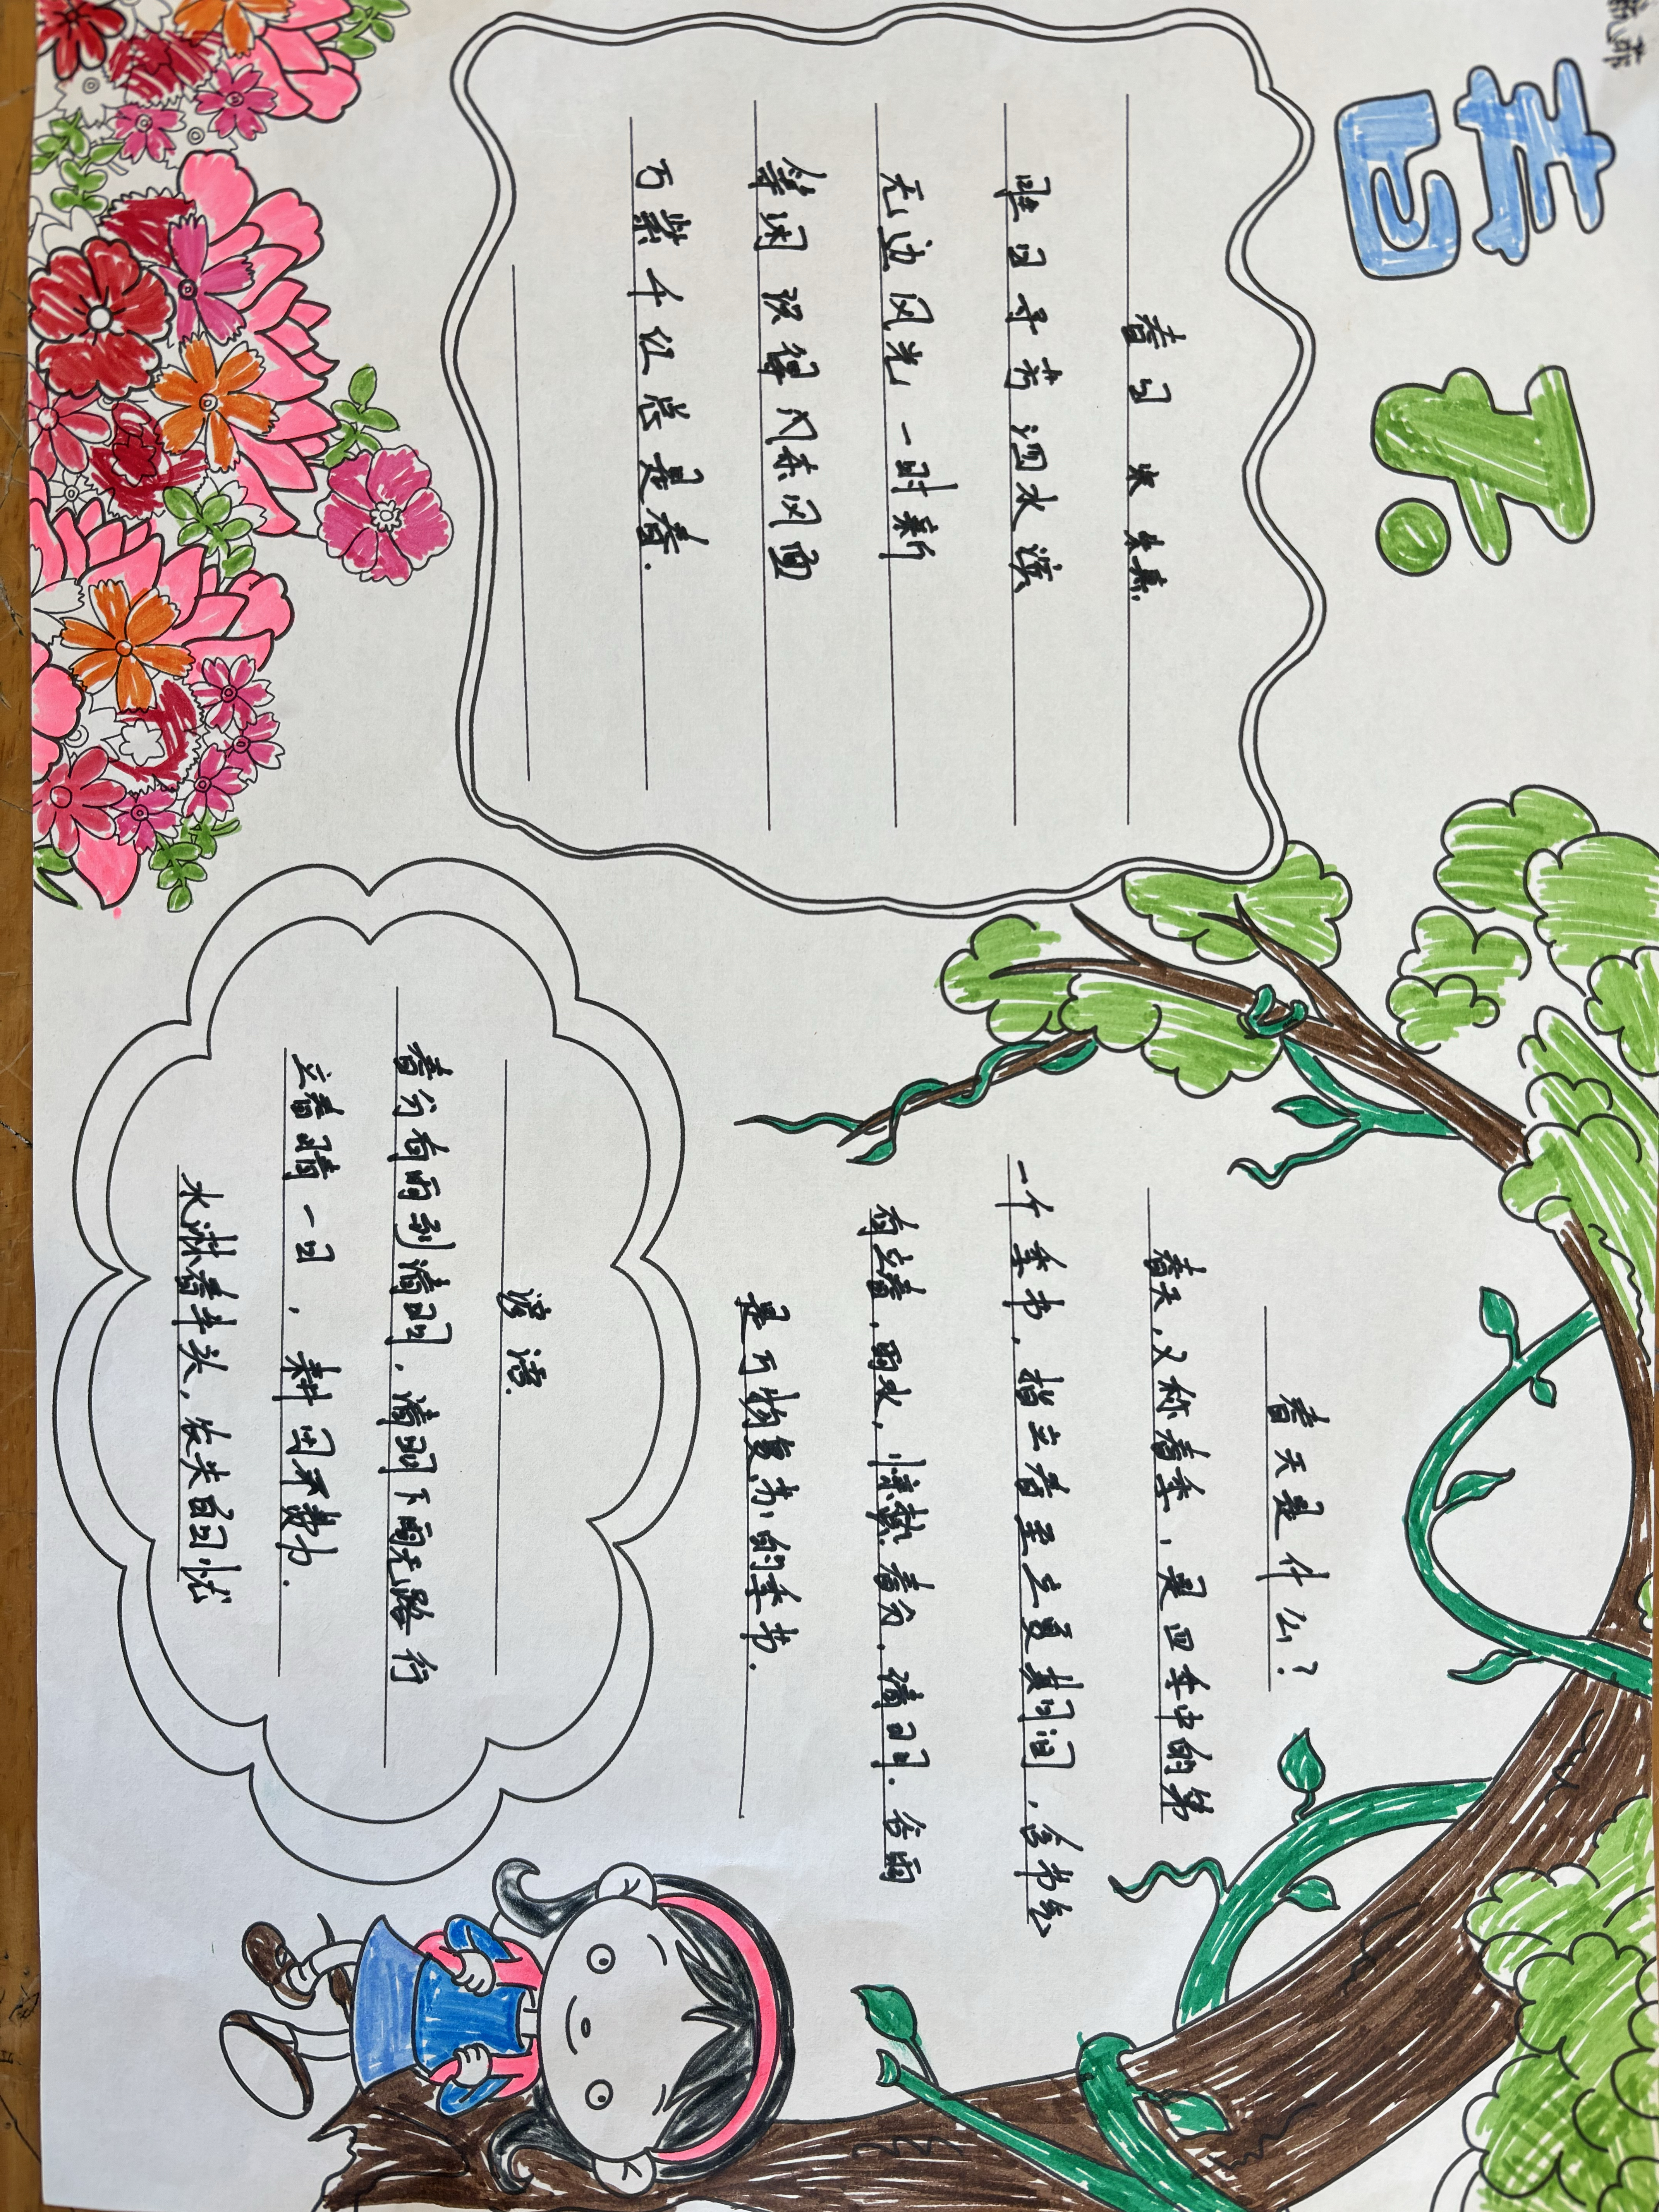 春
春日 宋 朱熹.
胜日寻芳泗水滨
无边风光一时新
等闲识得东风面
万紫千红总是春.
春天是什么?
春天,又称春季,是四季中的第
一个季节,指立春至立夏期间,含节气
有立春,雨水,惊蛰.春分.清明.谷雨
是万物复苏的季节.
谚语.
春分有雨到清明,清明下雨无路行
立春晴一日,耕田不费力.
水淋春牛头,农夫百日忧